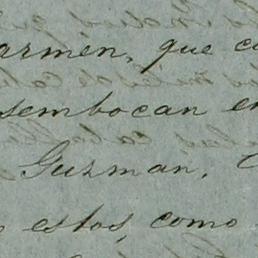 armen, que co
sembocan en
Guzman.
estos, como